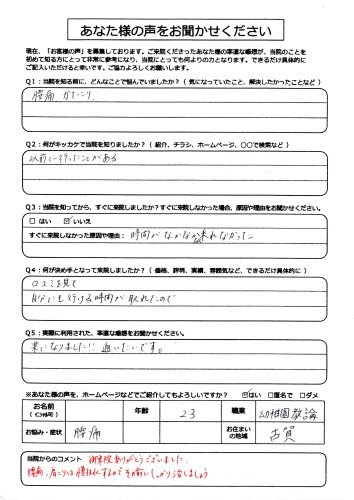 あなた様の声をお聞かせください
現在、「お客様の声」を募集しております。ご来院くださったあなた様の率直な感想が、当院のことを
初めて知る方にとって非常に参考になり、当院にとっても何よりの力となります。できるだけ具体的に
ご記入いただけると幸いです。ご協力よろしくお願いします。
Q1：当院を知る前に、どんなことで悩んでいましたか？（気になっていたこと、解決したかったことなど）
腰痛 かたこり
Q2：何がキッカケで当院を知りましたか？（紹介、チラシ、ホームページ、〇〇で検索など）
以前に行ったことがある
Q3：当院を知ってから、すぐに来院しましたか？すぐに来院しなかった場合、原因や理由をお聞かせください。
□ はい ☑ いいえ
すぐに来院しなかった原因や理由： 時間がなかなか来れなかった
Q4：何が決め手となって来院しましたか？（価格、評判、実績、雰囲気など、できるだけ具体的に）
口コミを見て
自分にも行ける時間が取れたので
Q5：実際に利用された、率直な感想をお聞かせください。
楽になりました!! 通いたいです。
※あなた様の声を、ホームページなどでご紹介してもよろしいですか？ ☑はい □匿名で □ダメ
お名前
（イニシャル可）
年齢 23 職業 幼稚園教諭
お悩み・症状 腰痛 お住まい
の地域 古賀
当院からのコメント 御来院ありがとうございました。
腰痛、肩こりは慢性化するので その前にしっかり治しましょう